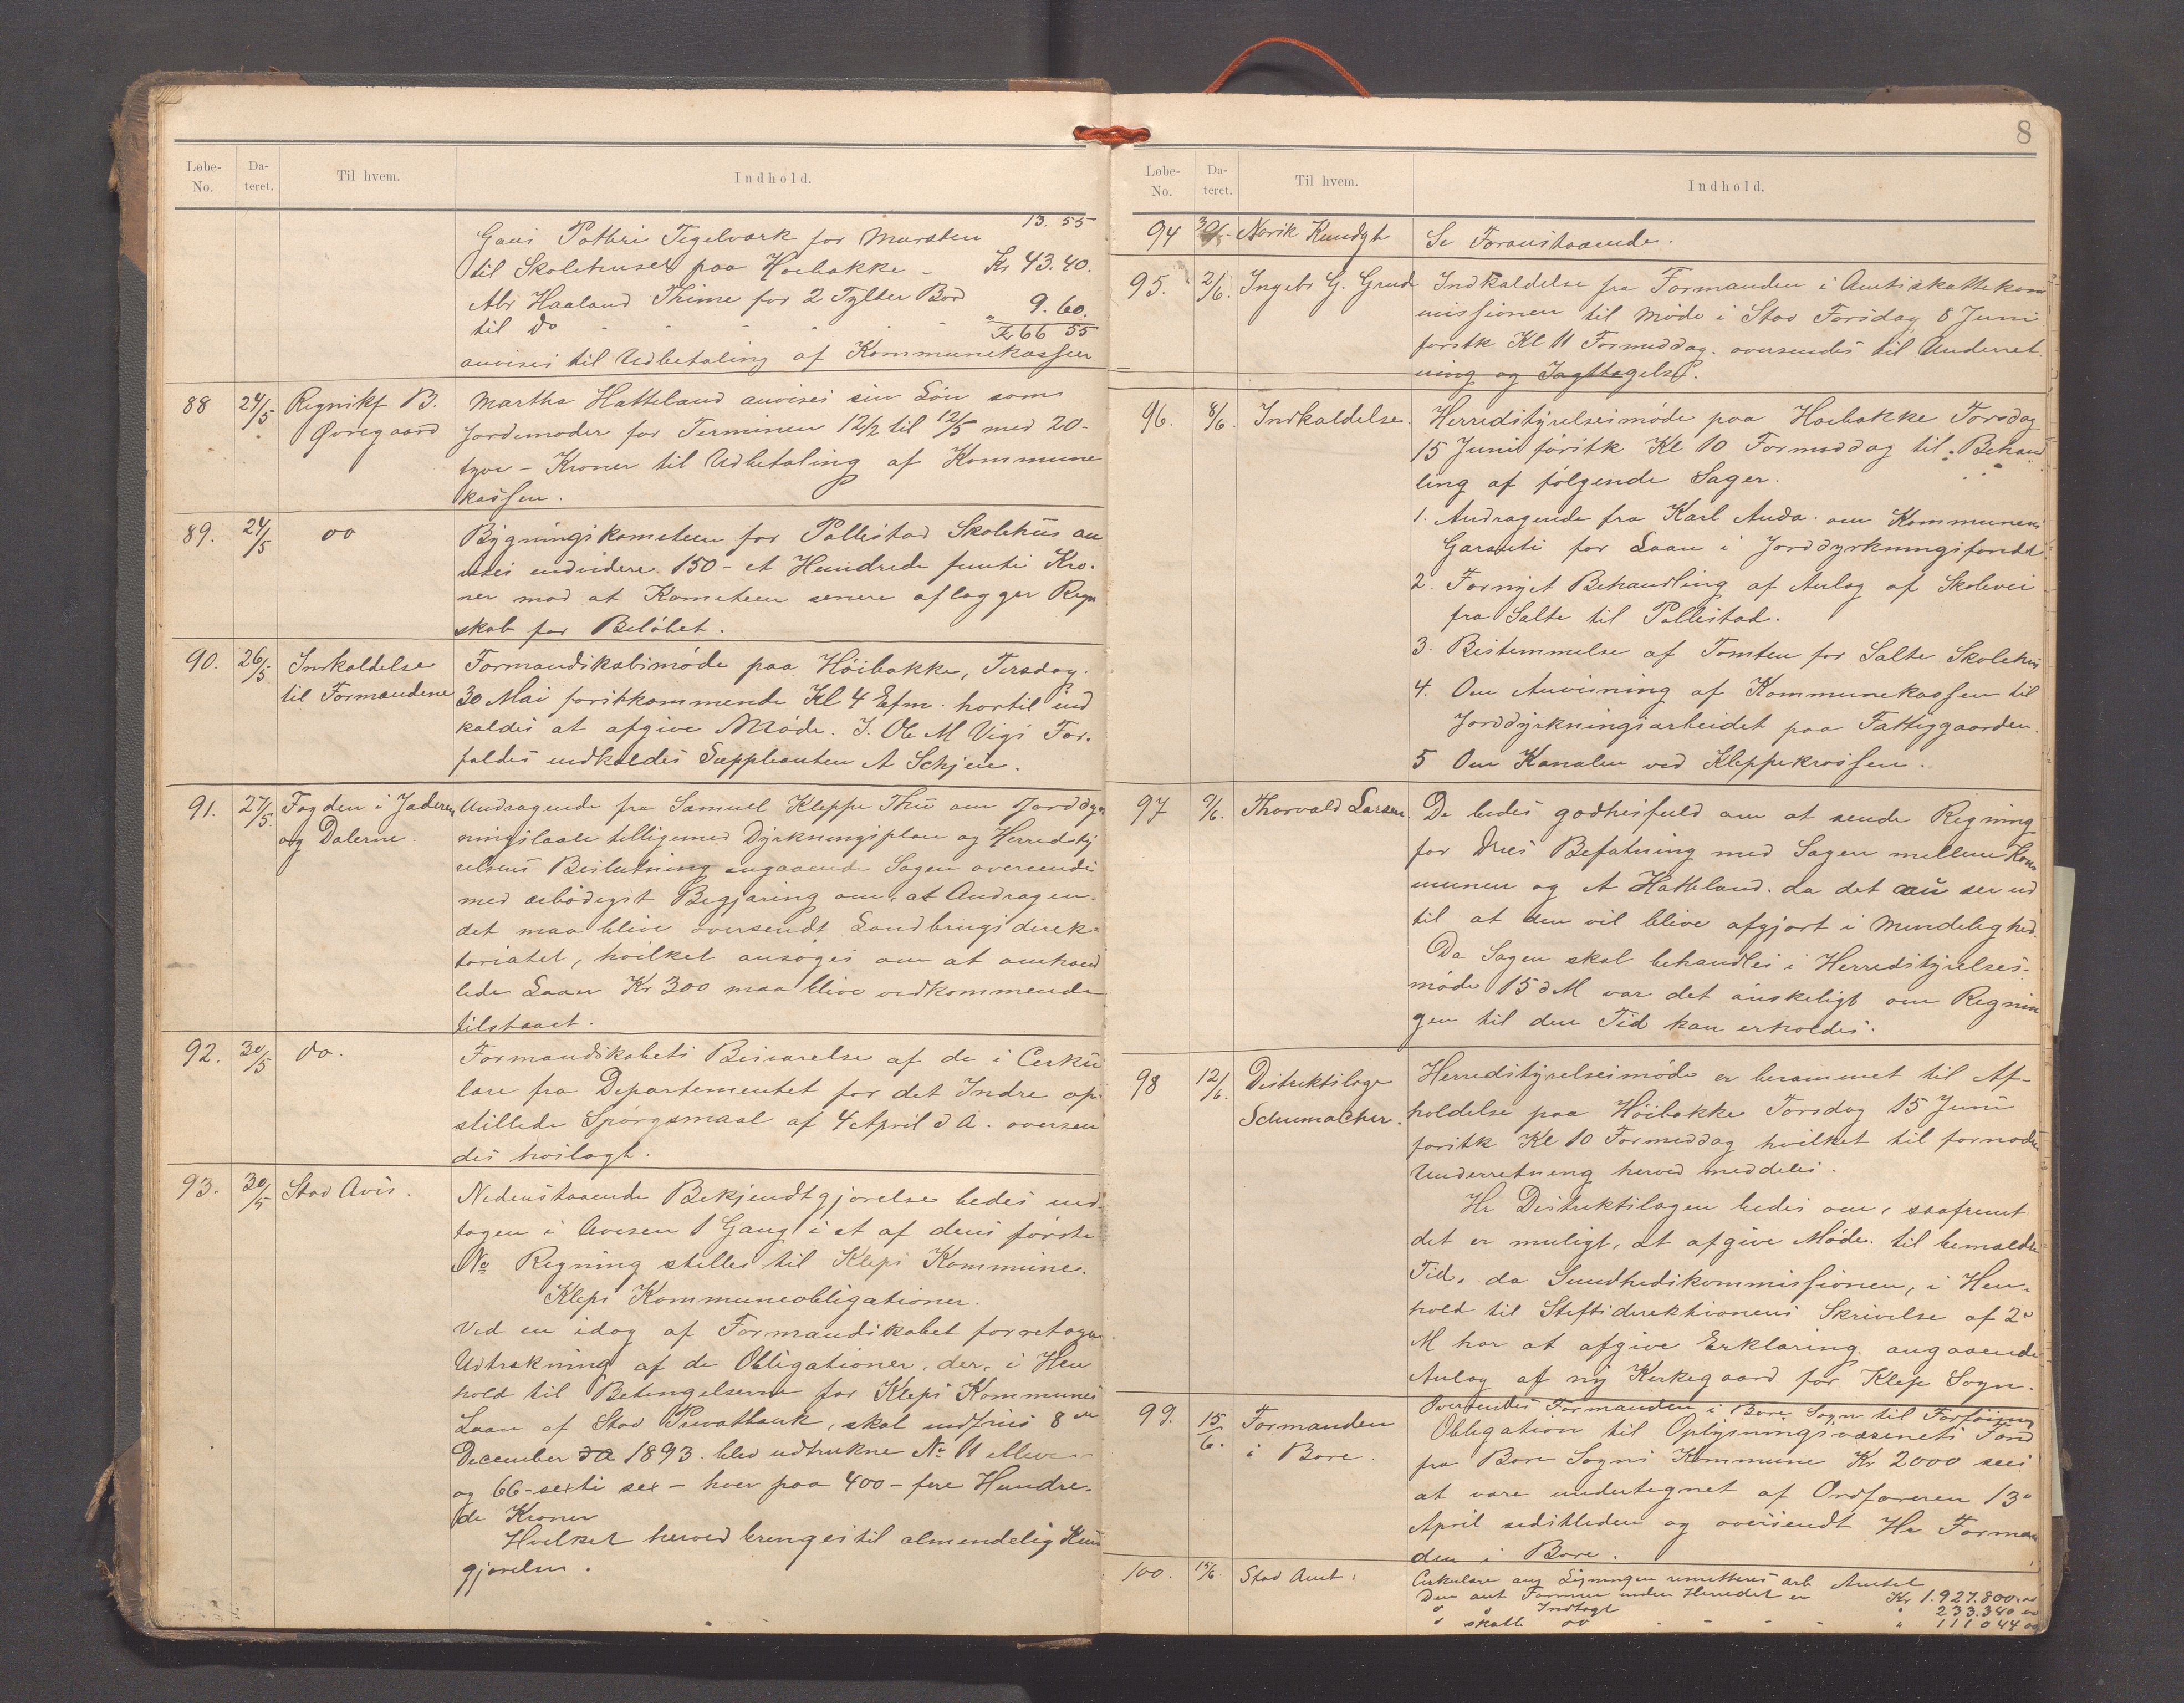 Løbe-No. Dateret. Til hvem. Indhold.
13. 55
Gans Potteri Tegelværk for Mursten
til Skolehuset paa Hoebakke - Kr 43.40.
Abr Haaland Thime for 2 Tylter Bord
til do " 9.60.
Kr 66 55
anvises til Udbetaling af Kommunekassen
88 24/5 Regnskf B. Martha Hatteland anvises sin Løn som
Øvregaard Jordemoder for Terminen 12/2 til 12/5 med 20-
tyve - Kroner til Udbetaling af Kommune
kassen.
89. 24/5 do Bygningskometeen for Pollestad Skolehus an
vises endvidere 150 - et Hundrede femti Kro-
ner mod at Kometeen senere aflægger Regn
skab for Beløbet.
90. 26/5 Indkaldelse Formandskabsmøde paa Höibakke, Tirsdag
til Formændene 30 Mai førstkommende Kl 4 Efm. hertil ind
kaldes at afgive Møde. I. Ole M Vigs For-
faldes indkaldes Suppleanten A Schjen.
91. 27/5. Fogden i Jæderen Andragende fra Samuel Kleppe Thu om Jorddyrk
og Dalerne. ningslaan tilligemed Dyrkningsplan og Herredsty
relsens Beslutning angaaende Sagen oversendes
med ærbödigst Begjæring om, at Andragen-
det maa blive oversendt Landbrugsdirek-
toriatet, hvilket ansøges om at omhand
lede Laan Kr 300 maa blive vedkommende
tilstaaet.
92. 30/5 do. Formandskabets Besvarelse af de i Cerku
lære fra Departementet for det Indre op-
stillede Spørgsmaal af 4 April d A. oversen
des hoslagt.
93. 30/5 Stav Avis. Nedenstaaende Bekjendtgjørelse bedes ind-
tagen i Avisen 1 Gang i et af dens første
No Regning stilles til Kleps Kommune.
Kleps Kommuneobligationer.
Ved en idag af Formandskabet foretagen
Udtrækning af de Obligationer, der, i Hen
hold til Betingelserne for Kleps Kommunes
Laan af Stav Privatbank, skal indfries 8de
December d A 1893. blev udtrukne No 11 elleve
og 66 - sexti sex - hver paa 400 - fire Hundre-
de Kroner
Hvilket herved bringes til almendelig Kun
gjørelse.
8
Løbe-No. Dateret. Til hvem. Indhold.
94 30/5 Narik Kundgt Se Foranstaaende.
95. 2/6. Ingebr G. Grude Indkaldelse fra Formanden i Amtsskattekom
missionen til Møde i Stav Torsdag 8 Juni
førstk Kl 11 Formiddag. oversendes til Underret
ning og Iagttagelse.
96. 8/6. Indkaldelse. Herredstyrelsesmøde paa Hoebakke Torsdag
15 Juni førstk Kl 10 Formiddag til Behand
ling af følgende Sager.
1. Andragende fra Karl Anda om Kommunens
Garanti for Laan i Jorddyrkningsfondet
2. Fornyet Behandling af Anlæg af Skolevei
fra Salte til Pollestad.
3. Bestemmelse af Tomten for Salte Skolehus
4. Om Anvisning af Kommunekassen til
Jorddyrkningsarbeidet paa Fattiggaarden.
5 Om Kanalen ved Kleppekrossen.
97 9/6. Thorvald Larsen. De bedes godhedsfuld om at sende Regning
for Deres Befatning med Sagen mellem Kom
munen og A Hatteland. da det nu ser ud
til at den vil blive afgjort i Mindelighed.
Da Sagen skal behandles i Herredstyrelses-
møde 15 d M var det ønskeligt om Regnin
gen til den Tid kan erholdes.
98 12/6. Distriktslæge Herredstyrelsesmøde er berammet til Af-
Schumacher. holdelse paa Höibakke Torsdag 15 Juni
førstk Kl 10 Formiddag hvilket til fornøden
Underretning herved meddeles.
Hr Distriktslægen bedes om, saafremt
det er muligt, at afgive Møde til bemeldte
Tid, da Sundhedskommissionen, i Hen-
hold til Stiftsdirektionens Skrivelse af 2 d
M har at afgive Erklæring angaaende
Anlæg af ny Kirkegaard for Klep Sogn.
99. 15/6. Formanden Oversendes Formanden i Bore Sogn til Forføining
i Bore. Obligation til Oplysningsvæsenets Fond
fra Bore Sogns Kommune Kr 2000 sees
at være undertegnet af Ordføreren 13 d
April sidstleden og oversendt Hr Forman
den i Bore.
100. 15/6. Stav Amt. Cirkulære ang Ligningen remitteres ærb Amtet
Den ant Formue inden Herredet er Kr 1.927.800.00
d d Indtægt " 233.340 00
d skatb do " 111 044 00